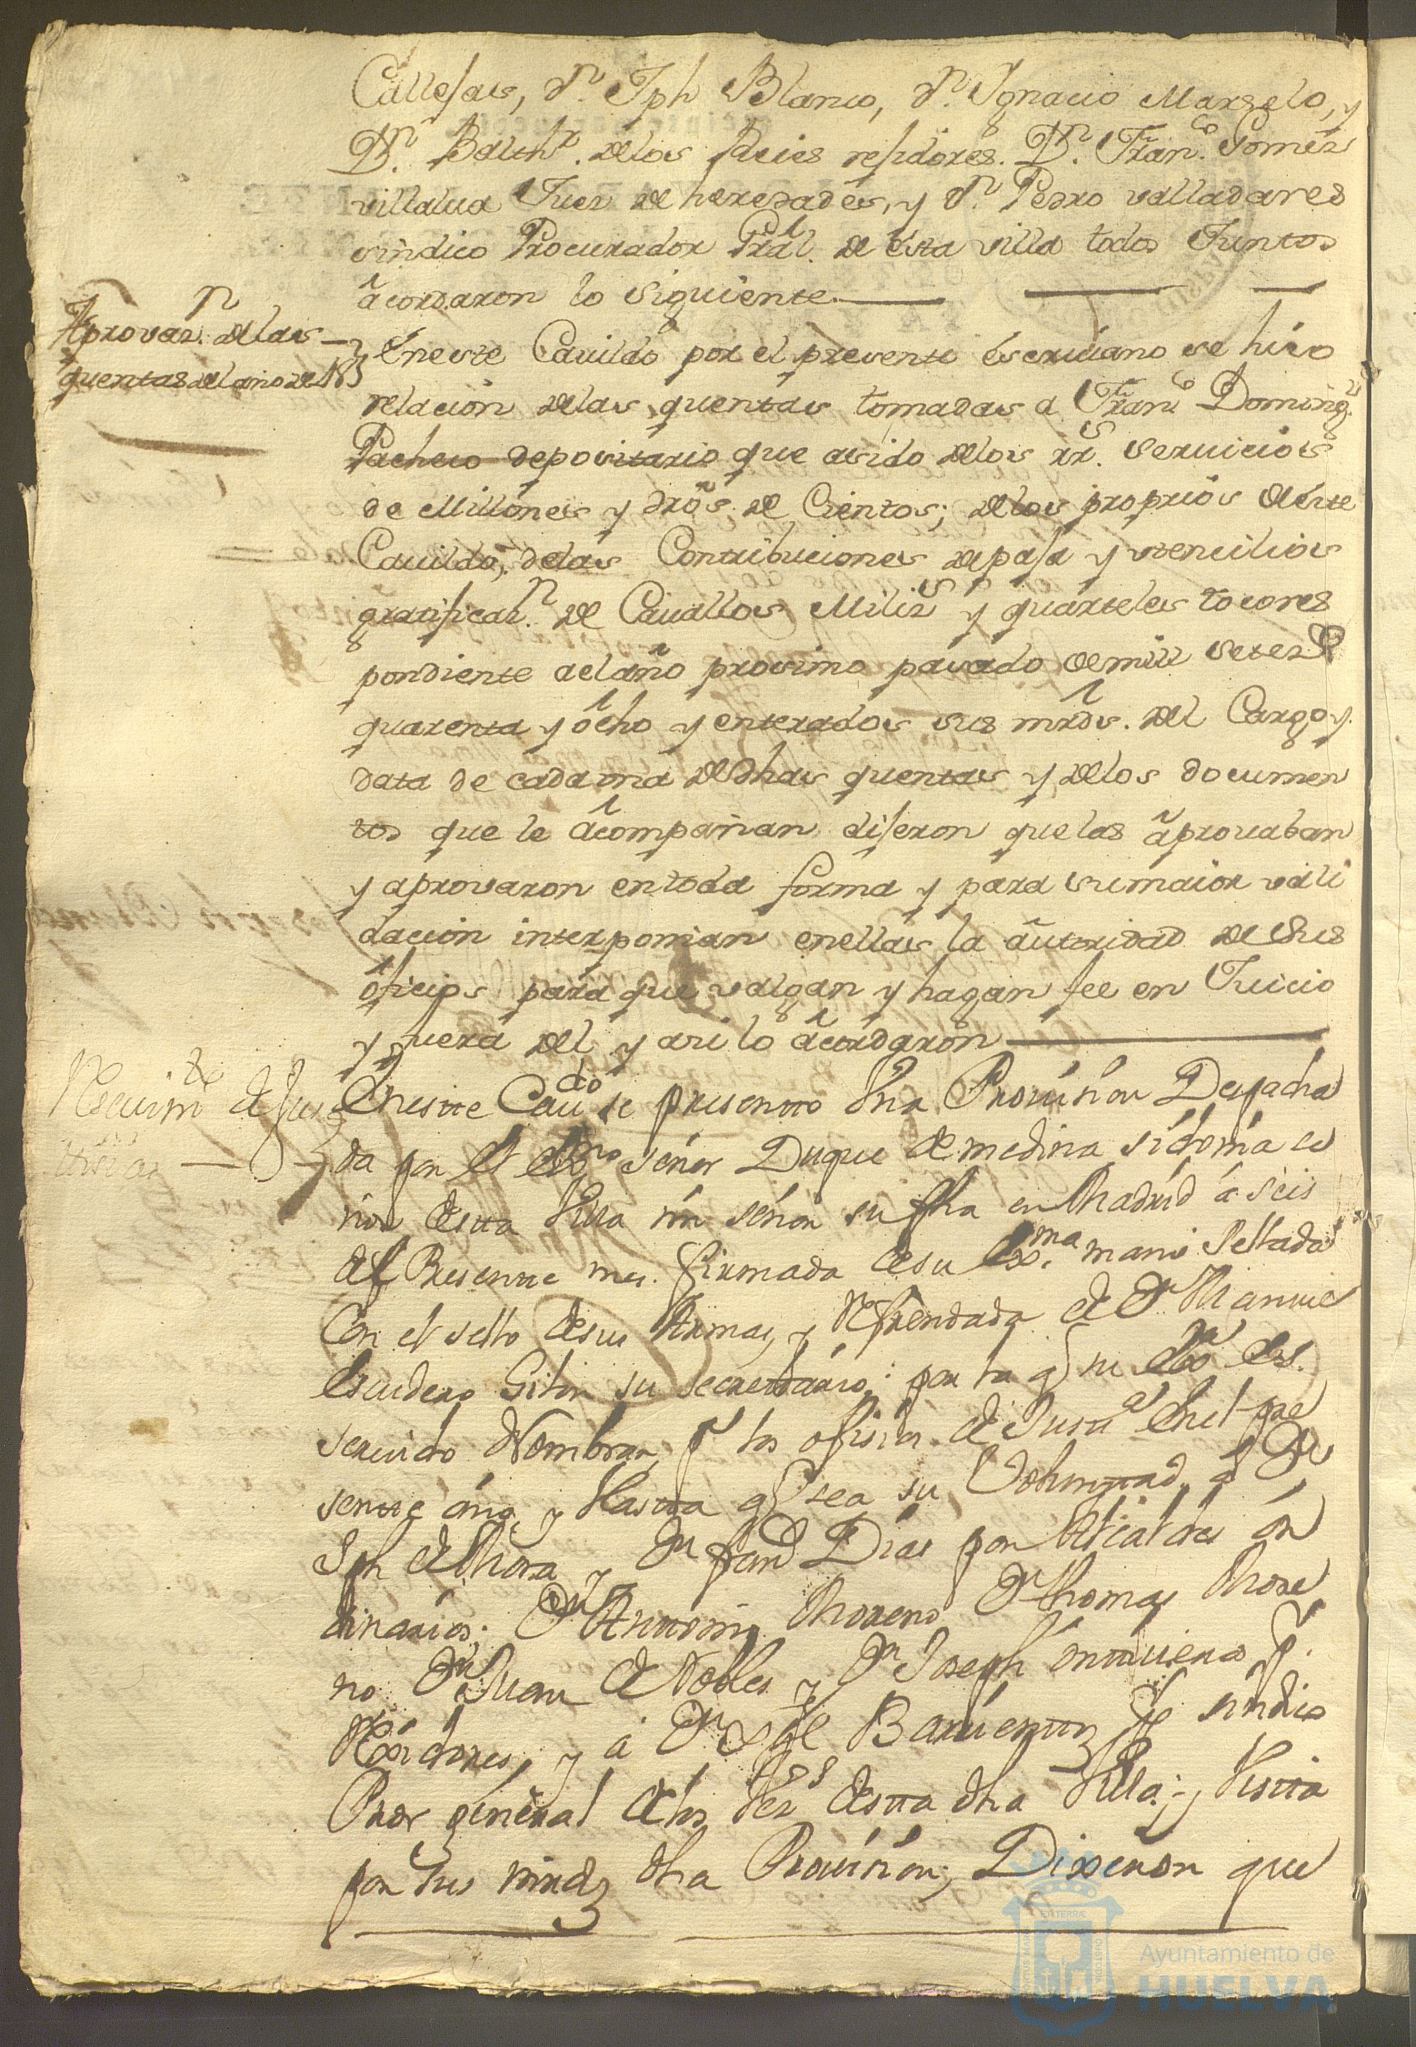 Callejas, Dn. Jph Blanco, Dn. Ygnacio Marzelo, y
Dn. Balthr. de los Reies rejidores. Dn. Frano. Gomez
villalva Juez de heredades, y Dn. Pedro valladares
sindico Procurador Gral. de esta villa todos Juntos
acordaron lo siguiente
Aprovazn. de las
quentas del año de
En este Cavildo por el presente Escrivano se hizo
relacion de las quentas tomadas a Frano. Doming.
Pacheco depositario que asido de los rrs. Servicios
de Millones y dros. de Cientos; de los proprios de este
Cavildo, de las Contribuciones de paja y utencilios
gratificazn. de Cavallos Milizs y quarteles to cores
pondiente del año proximo pasado de mill Setezs
quarenta y ocho y enterados sus mrds. del Cargo y
data de cada una de dhas quentas y de los documen
tos que le acompañan dijeron que las aprovaban
y aprovaron en toda forma y para su maior vali
dacion interponian en ellas la autoridad de Sus
oficios para que valgan y hagan fee en Juicio
y fuera del y asi lo acordaron
Resevimto de Jus
ticias
En este Cavdo se presento Vna Provision Despacha
da por el Exmo señor Duque de medina sidonia se
ñor desta Villa mi señor su fha en Madrid a seis
del Presente mes. firmada de su Exma. mano Sellada
Con el sello de sus Armas, y Refrendada de Dn Manuel
Escudero Gilon su secretario; por la q su Exa. es.
servido Nombrar pa los ofisios de Justa. en el pre
sente año, y Hasta q sea su Voluntad, a Dn
Jph de Mora, y Dn fernd Dias por Alcaldes or
dinarios; Dn Antonio Moreno Dn thomas More
no Dn Juan de Robles y Dn Joseph pr.
Rexidores, y á Dn Barrientos pr sindico
Pror general de los Vezs desta dha Villa; y Vista
por sus mrds dha Provision, Dixeron que
Ayuntamiento de
HUELVA